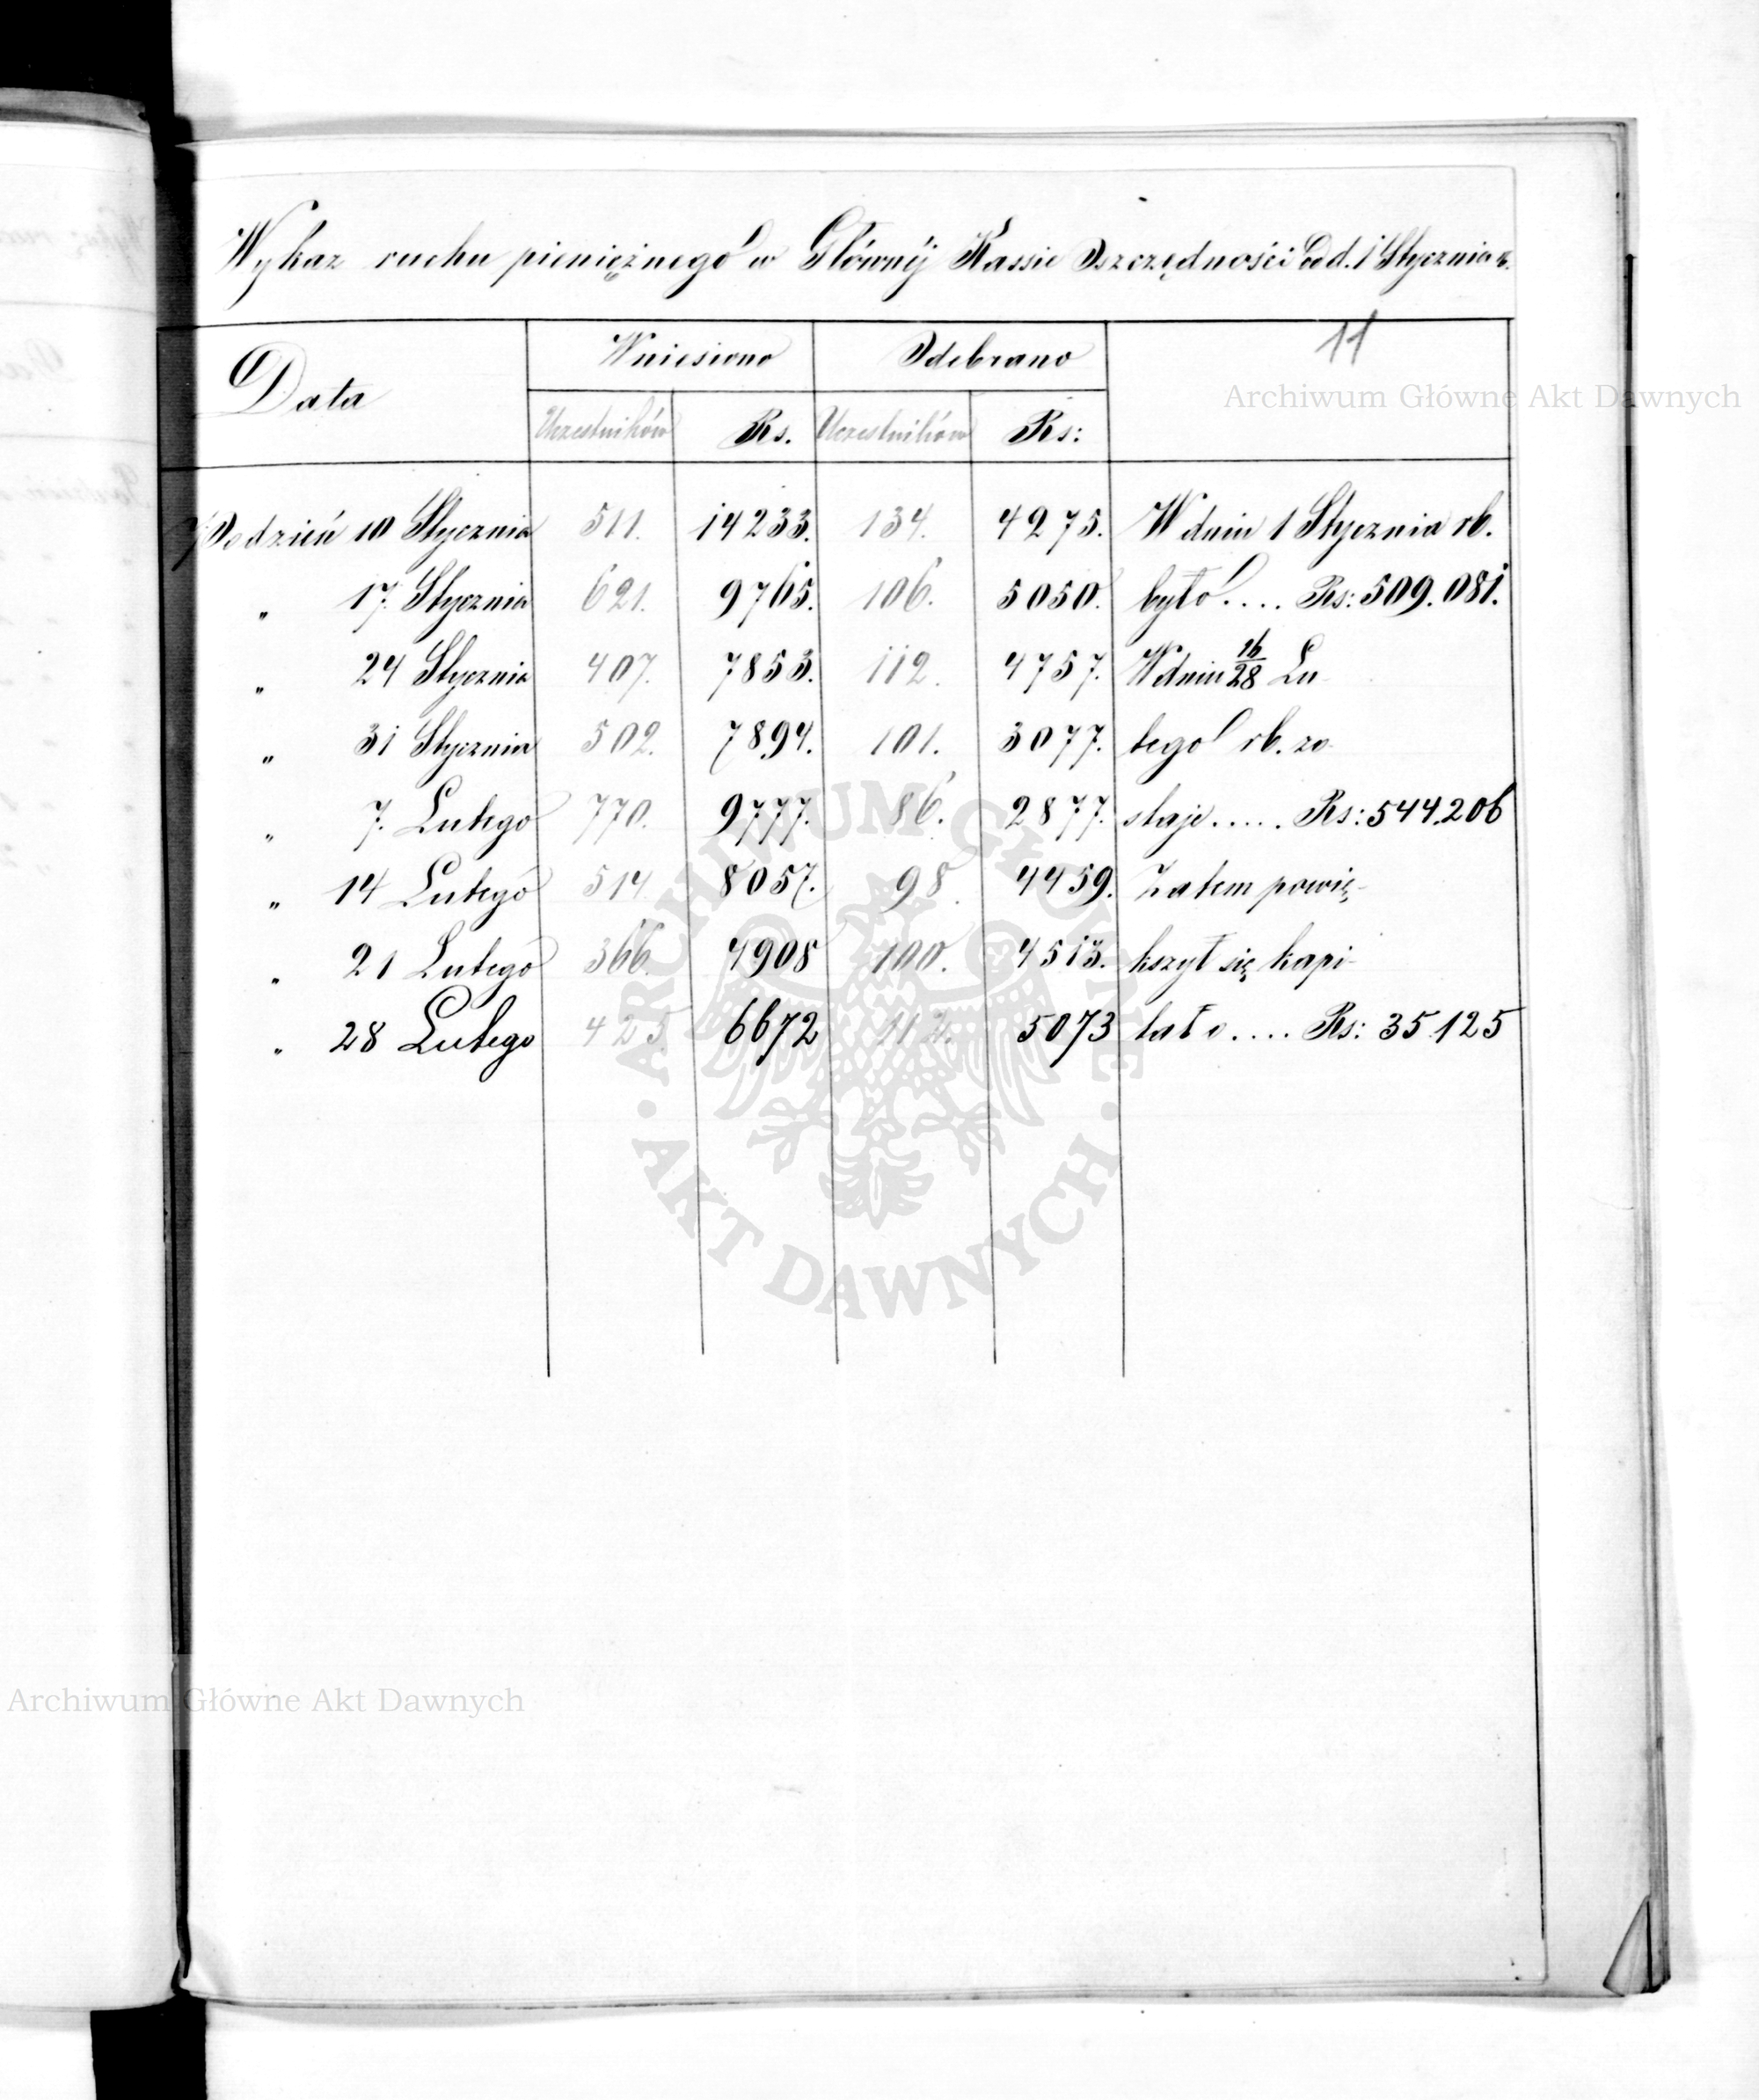 Wykaz ruchu pieniężnego w Główněj Kassie Oszczędności od d. 1 Stycznia rb.
11
Data Wniesiono Odebrano
Uczestników Rs. Uczestników Rs:
Po dzień 10 Stycznia 511. 14233. 134. 4275. W dniu 1 Stycznia rb.
" 17. Stycznia 621. 9765. 106. 5050. było.... Rs: 509.081.
" 24 Stycznia 407. 7853. 112. 4757. W dniu 16/28 Lu-
" 31 Stycznia 502. 7894. 101. 3077. tego rb. zo-
" 7. Lutego 770. 9777. 86. 2877. staje..... Rs: 544.206
" 14 Lutego 514. 8057. 98. 4459. Zatem powię-
" 21 Lutego 366. 4908 100. 4513. kszył się kapi-
" 28 Lutego 425. 6672 112. 5073 tał o.... Rs: 35.125
Archiwum Główne Akt Dawnych
ARCHIWUM GŁÓWNE
· AKT DAWNYCH ·
Archiwum Główne Akt Dawnych